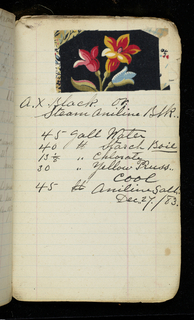 A.X. Black or
Steam Aniline Blk.
45 Galt Water
40 lb Starch Boil
13½ " Chlorate
30 " Yellow Pruss..
Cool
45 lb Aniline Salt
Dec 27/83.